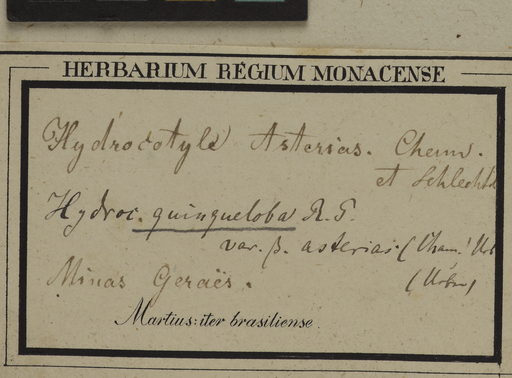 HERBARIUM REGIUM MONACENSE
Hydrocotyle Asterias. Cham.
et Schlechtd
Hydroc. quinqueloba R. P.
var. β. asterias (Cham. Urb
(Urban)
Minas Geraës.
Martius: iter brasiliense.